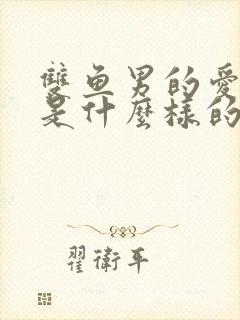 雙魚男的愛
是什麼樣的
翟衛平